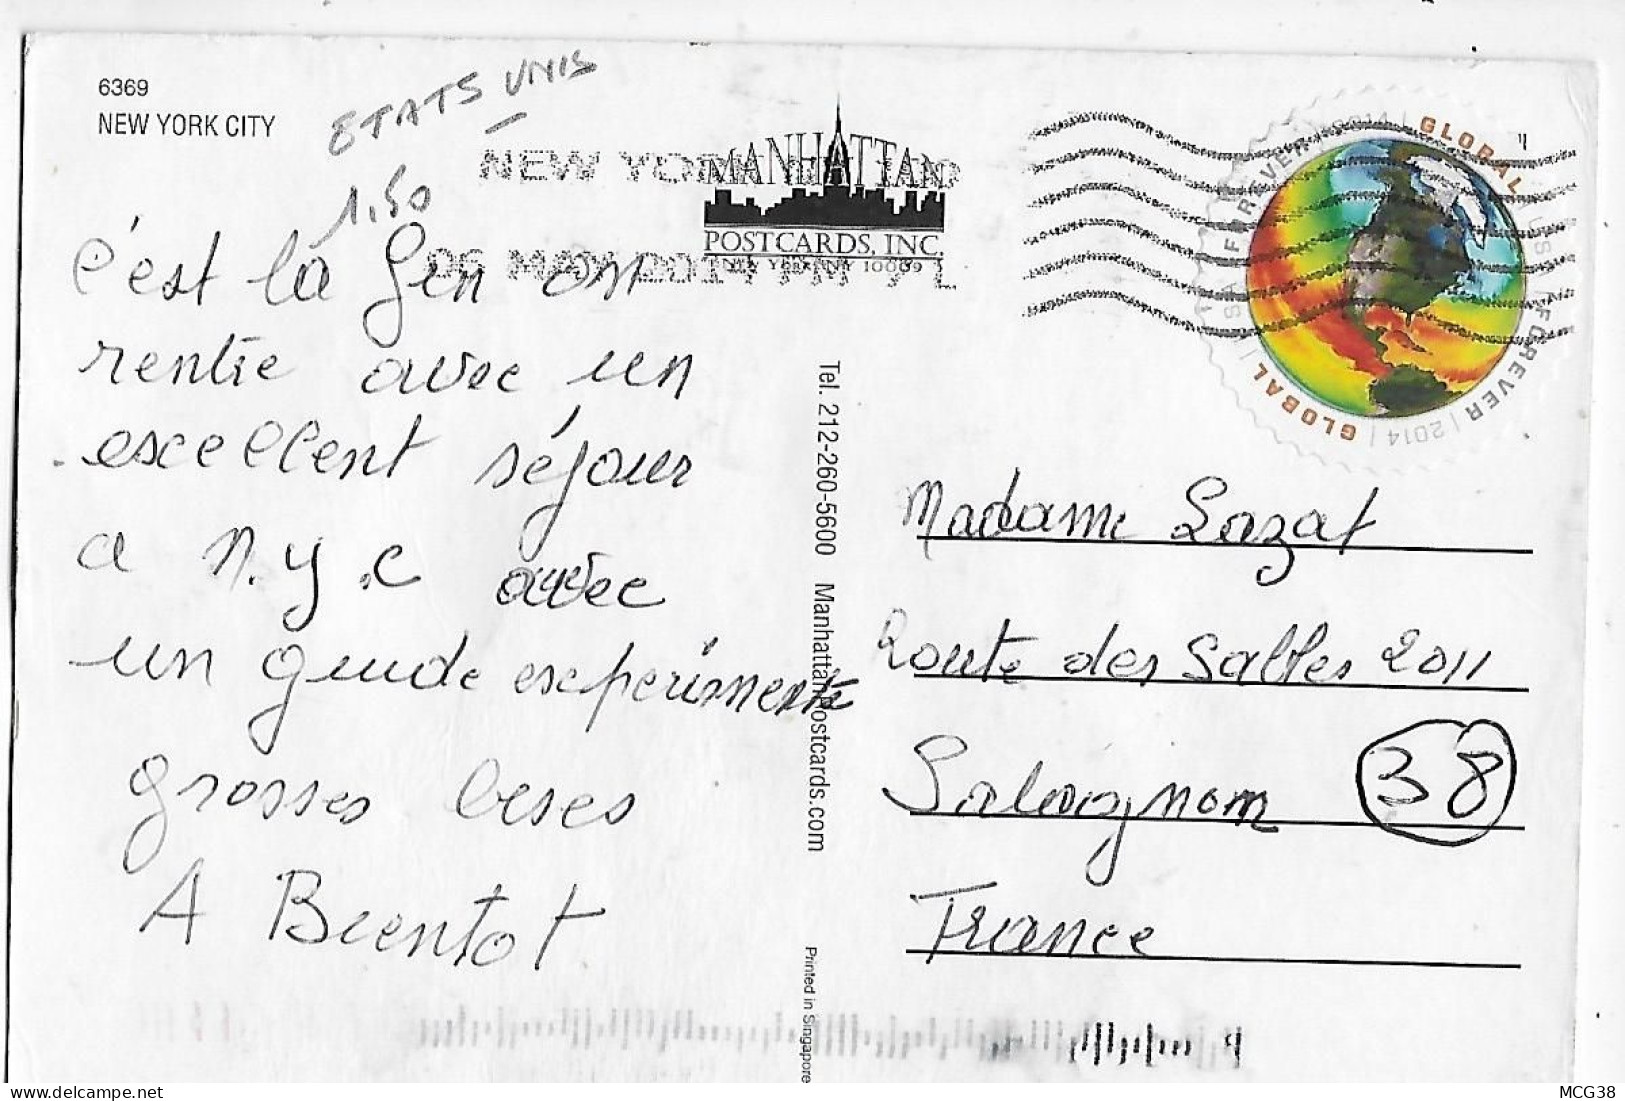 6369
NEW YORK CITY
ETATS UNIS
1.50
NEW YORK
MANHATTAN
POSTCARDS, INC.
NEW YORK, NY 10009
06 MAY 2017 PM 7 L
GLOBAL | USA FOREVER | 2014 | GLOBAL | USA FOREVER | 2014 |
c'est la fin on
rentre avec un
excellent séjour
a n.y.c avec
un guide experimente
grosses beses
A Bientot
Tel. 212-260-5600 Manhattanpostcards.com
Printed in Singapore
Madame Lazat
Route des Salles 2011
Salagnom 38
France
MCG38